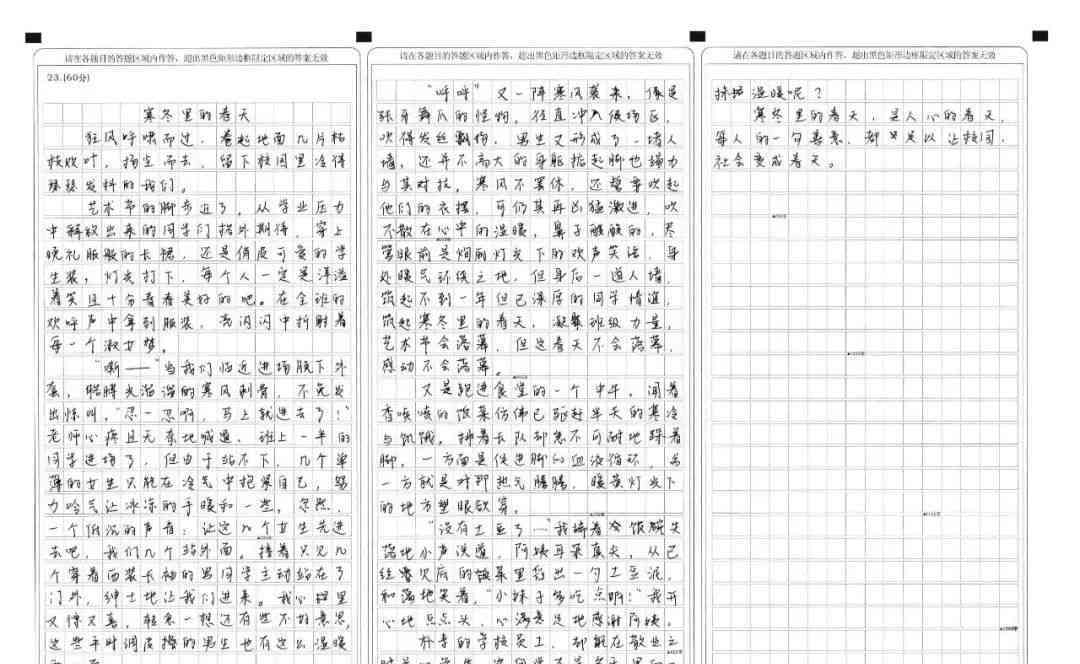 请在各题目的答题区域内作答，超出黑色矩形边框限定区域的答案无效
23.(60分)
寒冬里的春天
狂风呼啸而过，卷起地面几片枯
枝败叶，扬尘而去，留下校园里冷得
瑟瑟发抖的我们。
艺术节的脚步近了，从学业压力
中解放出来的同学们格外期待，穿上
晚礼服般的长裙，还是俏皮可爱的学
生装，灯光打下，每个人一定是洋溢
着笑且十分青春美好的吧。在全班的
欢呼声中拿到服装，亮闪闪中折射着
每一个淑女梦。
"嘶——"当我们临近进场脱下外
套，胳膊光溜溜的寒风刺骨，不免发
出惊叫，"忍一忍啊，马上就进去了！"
老师心疼且无奈地喊道，班上一半的
同学进场了，但由于站不下，几个单
薄的女生只能在冷气中抱紧自己，努
力哈气让冰冻的手暖和一些，忽然，
一个低沉的声音：让这几个女生先进
去吧，我们几个站外面。接着只见几
个穿着西装长袖的男同学主动站在了
门外，绅士地让我们进来。我心里
又得又喜，轻轻一想还有些不好意思，
这些平时调皮捣的男生也有这么温暖
请在各题目的答题区域内作答，超出黑色矩形边框限定区域的答案无效
"呼呼"又一阵寒风袭来，像是
张牙舞爪的怪物，径直冲入候场区，
吹得发丝飘扬，男生又形成了一堵人
墙，还并不高大的身躯踮起脚也竭力
与其对抗，寒风不罢休，还誓要吹起
他们的衣摆，可仍其再凶猛激进，吹
不散在心中的温暖，鼻子酸酸的，尽
管眼前是绚丽灯光下的欢声笑语，身
处暖气环绕之地，但身后一道人墙，
筑起不到一年但已深厚的同学情谊，
筑起寒冬里的春天，凝聚班级力量，
艺术节会落幕，但这春天不会落幕，
感动不会落幕。
又是跑进食堂的一个中午，闻着
香喷喷的饭菜仿佛已驱赶半天的寒冷
与饥饿，排着长队却急不可耐地跺着
脚，一方面是促进脚的血液循环，另
一方就是对那热气腾腾，暖黄灯光下
的地方望眼欲穿。
"没有土豆了—"我捧着冷饭碗失
落地小声说道，阿姨耳朵真尖，从已
经要见底的饭菜里舀出一勺土豆泥，
和蔼地笑着，"小妹子多吃点啊！"我开
心地点点头，心满意足地感谢阿姨。
朴素的学校员工，却能在散业之
请在各题目的答题区域内作答，超出黑色矩形边框限定区域的答案无效
温暖呢？
寒冬里的春天，是人心的春天，
每人的一句善意，都足以让校园，
社会变成春天。